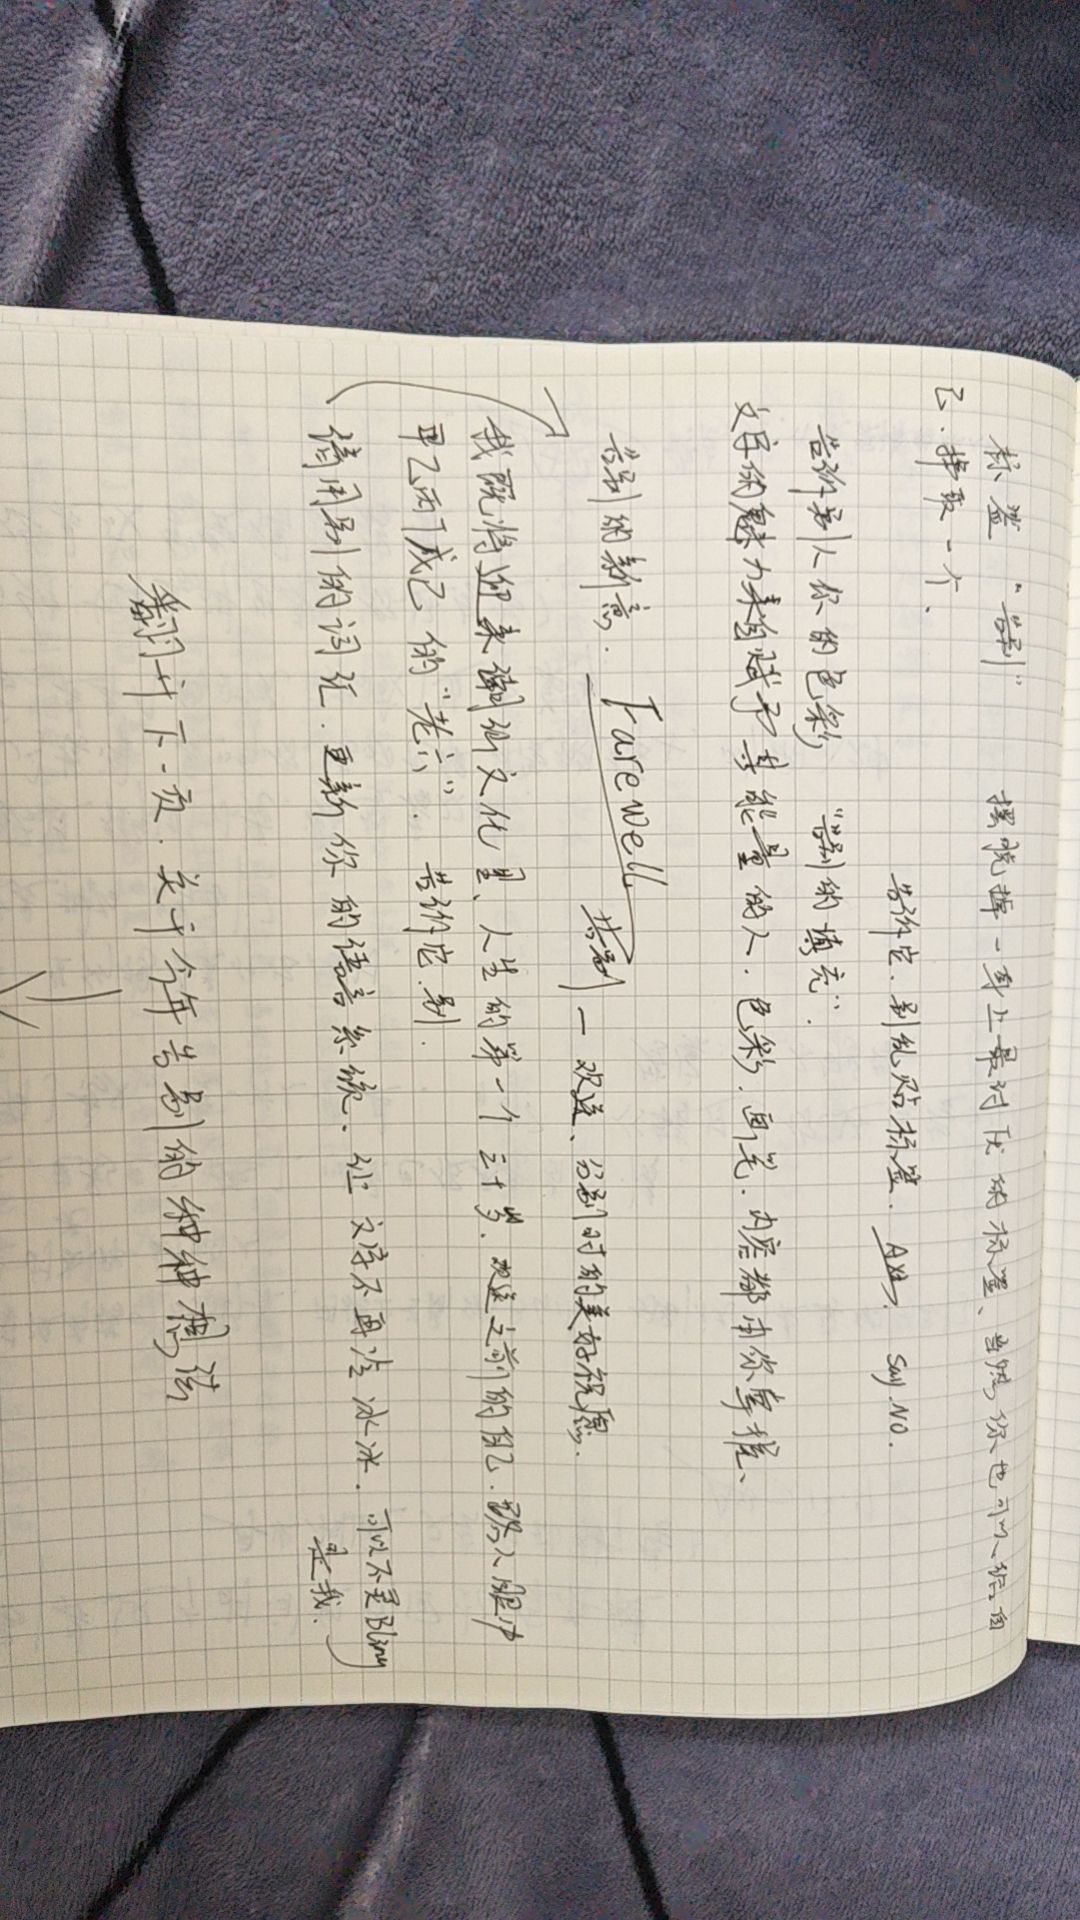 标签 “告别” 摆脱掉一身上最讨厌的标签、当然你也可以给自
己.择取一个.
告诉它.别乱贴标签. say NO.
告诉别人你的色彩 “告别的填充”.
文字的魅力来自赋予其能量的人.色彩.画笔.内容都由你掌握、
告别的新意. Farewell 告别 — 欢送、分别时的美好祝愿.
我既将迎来潮汕文化里、人生的第一个三十岁.欢送之前的自己.踏入腿冲
甲乙丙丁戊己的“老六”. 告诉它.别.
借用别的词汇.更新你的语言系统.让文字不再冷冰冰. 可以不是Bling
是我.
翻开下一页.关于今年告别的种种想法